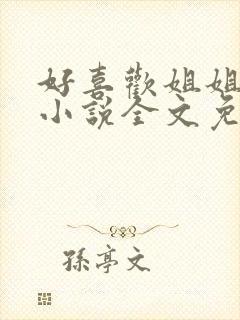 好喜歡姐姐
小說全文免
孫亭文